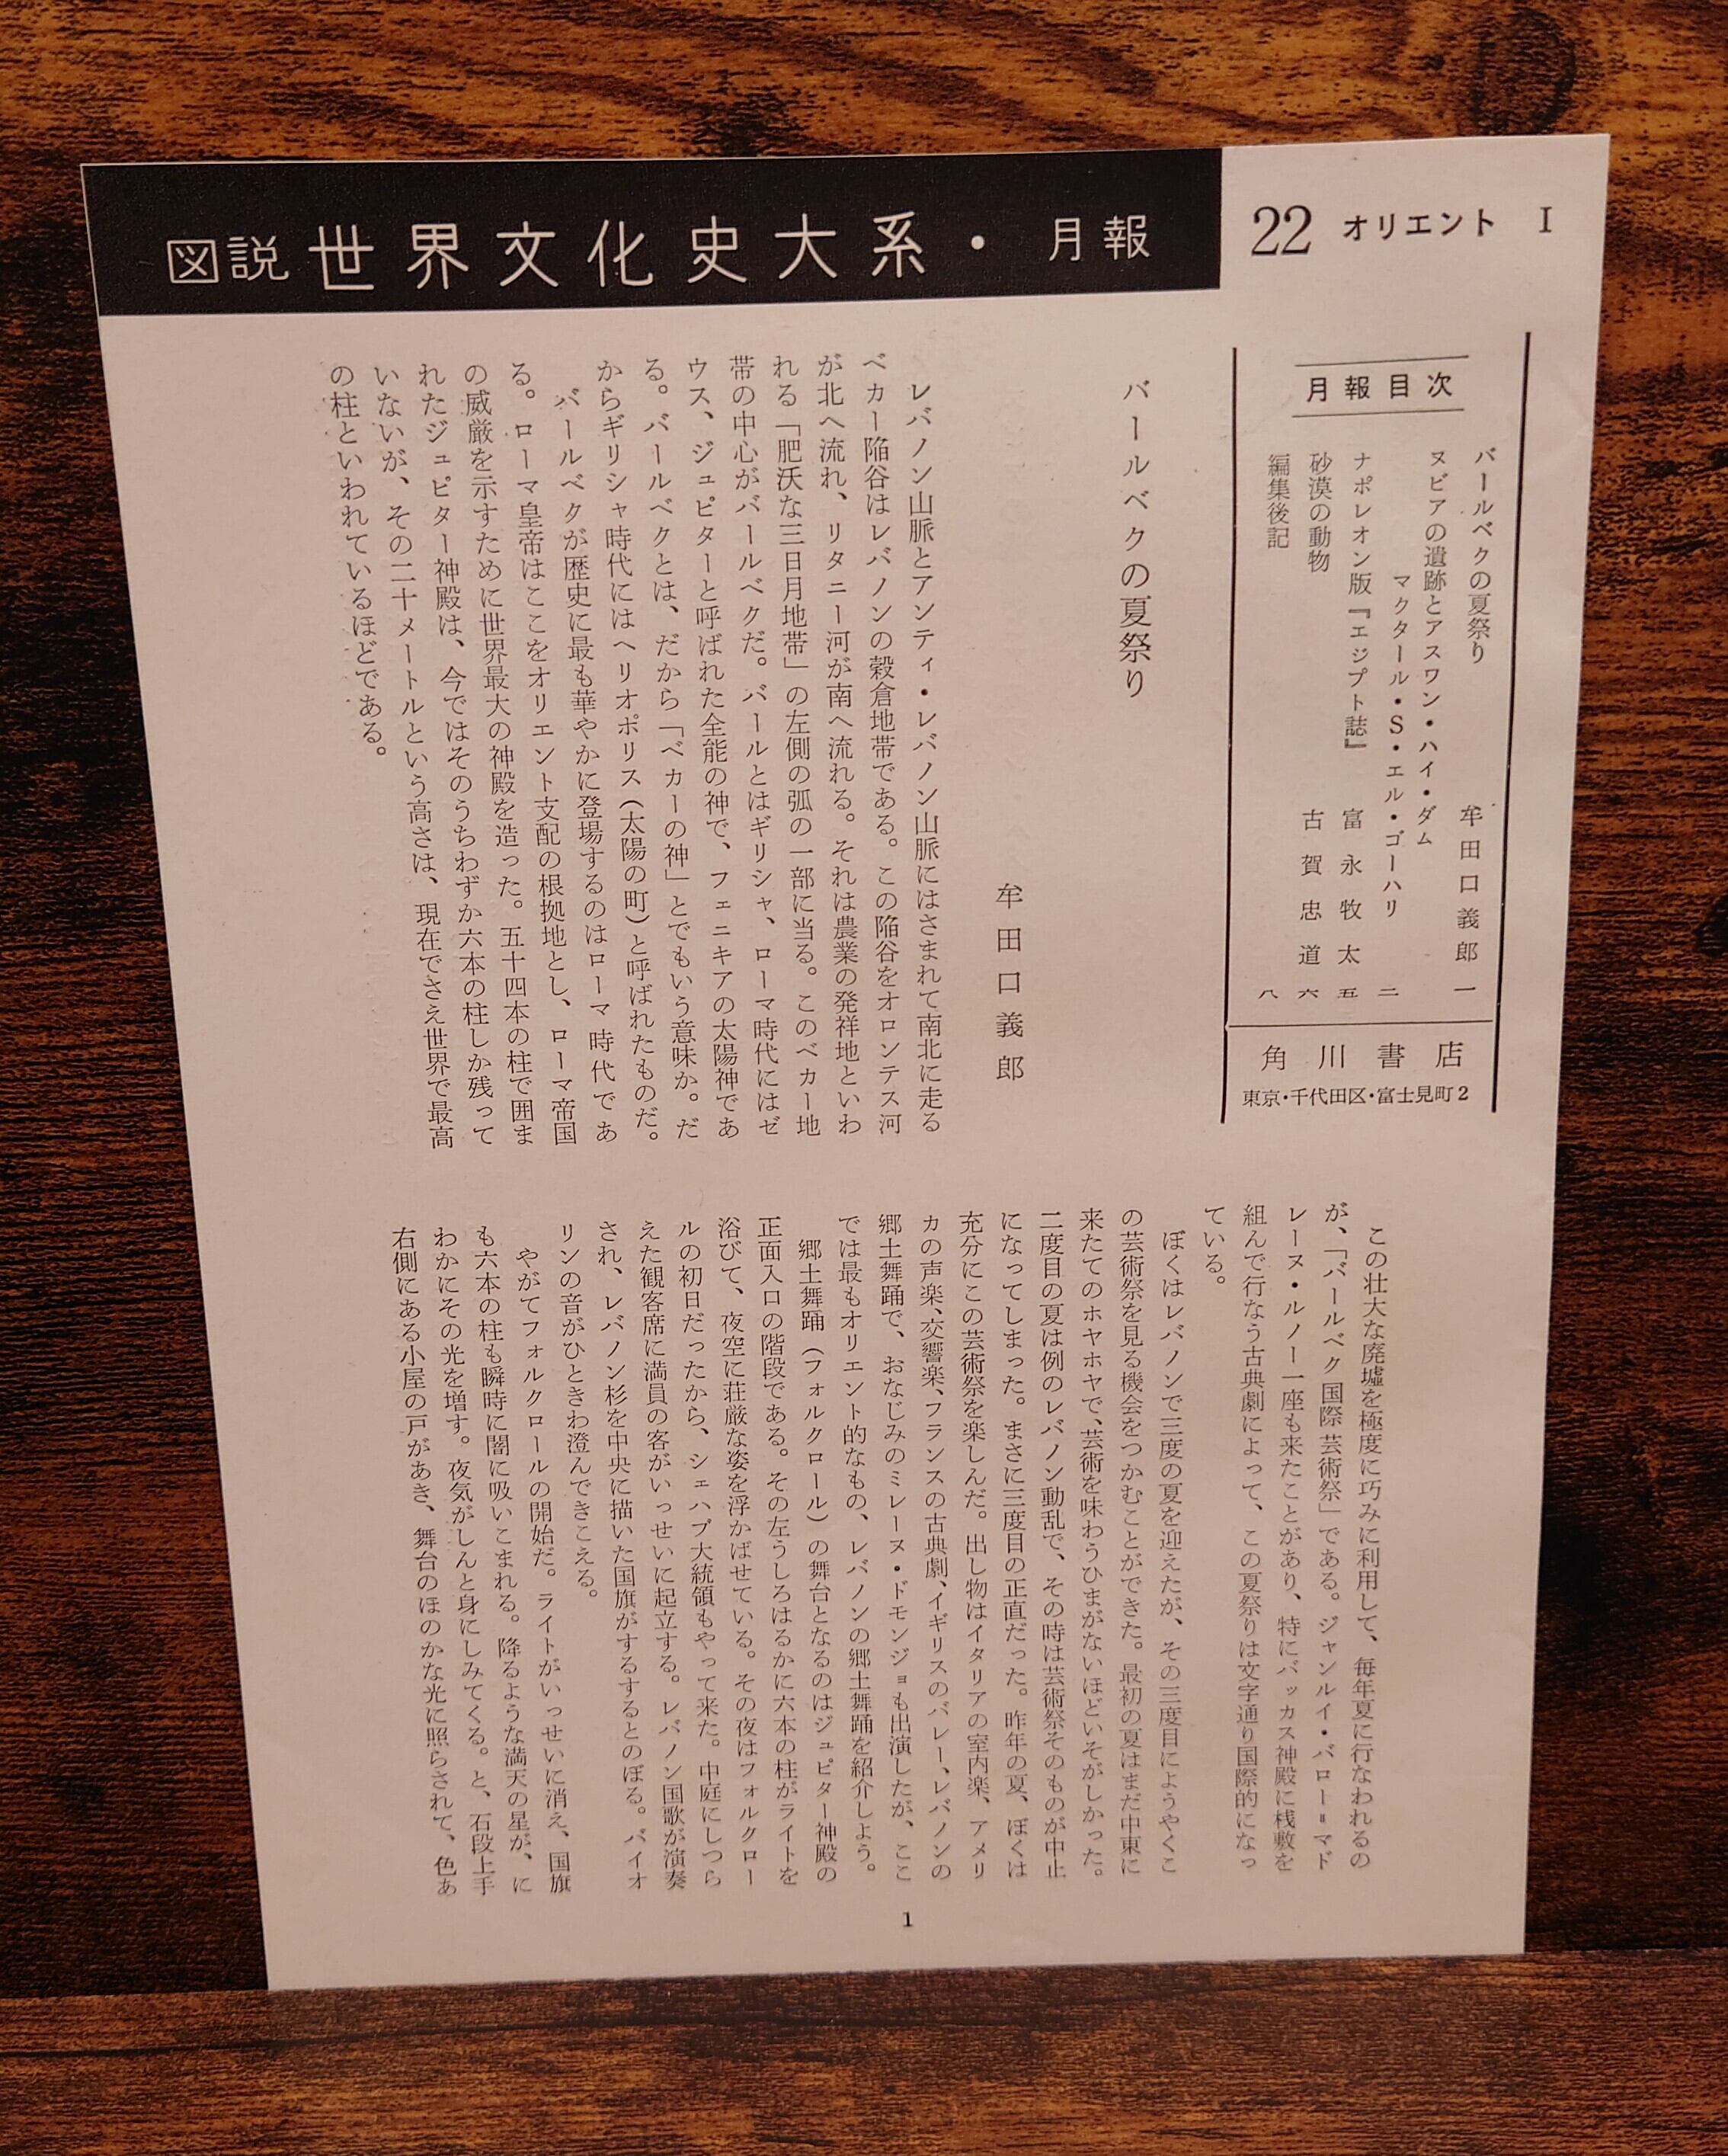 図説 世界文化史大系・月報
22 オリエント I
月報目次
バールベクの夏祭り 牟田口義郎 一
ヌビアの遺跡とアスワン・ハイ・ダム
マクタール・S・エル・ゴーハリ 二
ナポレオン版『エジプト誌』 富永牧太 五
砂漠の動物 古賀忠道 六
編集後記 八
角川書店
東京・千代田区・富士見町2
バールベクの夏祭り
牟田口義郎
レバノン山脈とアンティ・レバノン山脈にはさまれて南北に走る
ベカー陥谷はレバノンの穀倉地帯である。この陥谷をオロンテス河
が北へ流れ、リタニー河が南へ流れる。それは農業の発祥地といわ
れる「肥沃な三日月地帯」の左側の弧の一部に当る。このベカー地
帯の中心がバールベクだ。バールとはギリシャ、ローマ時代にはゼ
ウス、ジュピターと呼ばれた全能の神で、フェニキアの太陽神であ
る。バールベクとは、だから「ベカーの神」とでもいう意味か。だ
からギリシャ時代にはヘリオポリス(太陽の町)と呼ばれたものだ。
バールベクが歴史に最も華やかに登場するのはローマ時代であ
る。ローマ皇帝はここをオリエント支配の根拠地とし、ローマ帝国
の威厳を示すために世界最大の神殿を造った。五十四本の柱で囲ま
れたジュピター神殿は、今ではそのうちわずか六本の柱しか残って
いないが、その二十メートルという高さは、現在でさえ世界で最高
の柱といわれているほどである。
この壮大な廃墟を極度に巧みに利用して、毎年夏に行なわれるの
が、「バールベク国際芸術祭」である。ジャンルイ・バロー＝マド
レーヌ・ルノー一座も来たことがあり、特にバッカス神殿に桟敷を
組んで行なう古典劇によって、この夏祭りは文字通り国際的になっ
ている。
ぼくはレバノンで三度の夏を迎えたが、その三度目にようやくこ
の芸術祭を見る機会をつかむことができた。最初の夏はまだ中東に
来たてのホヤホヤで、芸術を味わうひまがないほどいそがしかった。
二度目の夏は例のレバノン動乱で、その時は芸術祭そのものが中止
になってしまった。まさに三度目の正直だった。昨年の夏、ぼくは
充分にこの芸術祭を楽しんだ。出し物はイタリアの室内楽、アメリ
カの声楽、交響楽、フランスの古典劇、イギリスのバレー、レバノンの
郷土舞踊で、おなじみのミレーヌ・ドモンジョも出演したが、ここ
では最もオリエント的なもの、レバノンの郷土舞踊を紹介しよう。
郷土舞踊(フォルクロール)の舞台となるのはジュピター神殿の
正面入口の階段である。その左うしろはるかに六本の柱がライトを
浴びて、夜空に荘厳な姿を浮かばせている。その夜はフォルクロー
ルの初日だったから、シェハブ大統領もやって来た。中庭にしつら
えた観客席に満員の客がいっせいに起立する。レバノン国歌が演奏
され、レバノン杉を中央に描いた国旗がするするとのぼる。バイオ
リンの音がひときわ澄んできこえる。
やがてフォルクロールの開始だ。ライトがいっせいに消え、国旗
も六本の柱も瞬時に闇に吸いこまれる。降るような満天の星が、に
わかにその光を増す。夜気がしんと身にしみてくる。と、石段上手
右側にある小屋の戸があき、舞台のほのかな光に照らされて、色あ
1